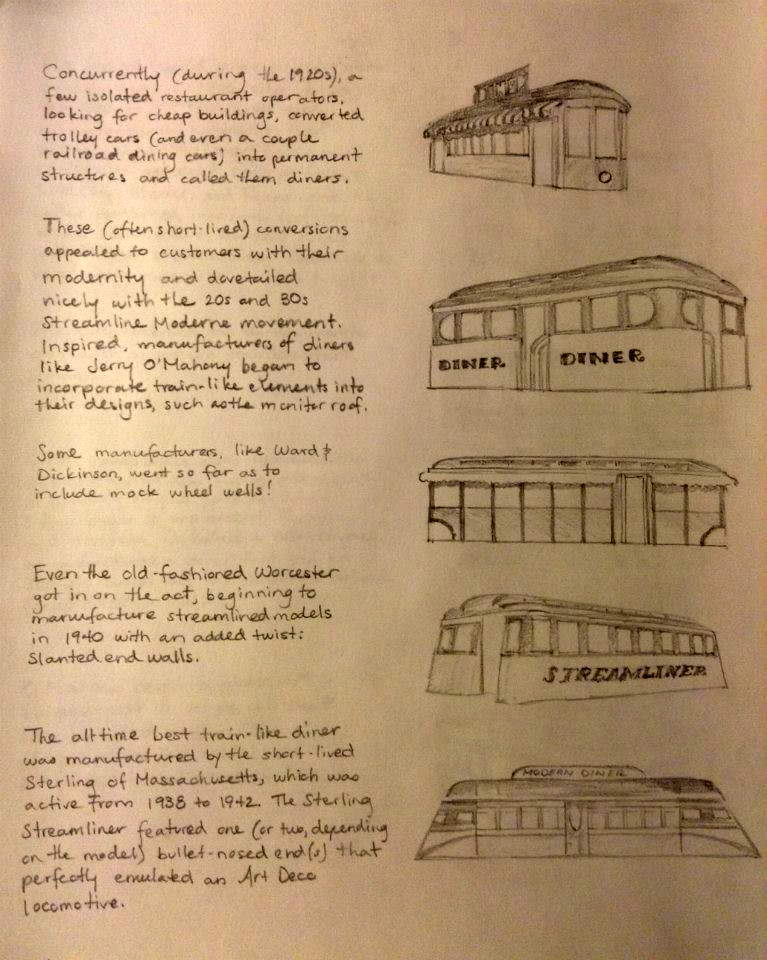 Concurrently (during the 1920s), a
few isolated restaurant operators,
looking for cheap buildings, converted
trolley cars (and even a couple
railroad dining cars) into permanent
structures and called them diners.
These (often short-lived) conversions
appealed to customers with their
modernity and dovetailed
nicely with the 20s and 30s
Streamline Moderne movement.
Inspired, manufacturers of diners
like Jerry O'Mahony began to
incorporate train-like elements into
their designs, such as the monitor roof.
DINER
DINER
Some manufacturers, like Ward &
Dickinson, went so far as to
include mock wheel wells!
Even the old-fashioned Worcester
got in on the act, beginning to
manufacture streamlined models
in 1940 with an added twist:
Slanted end walls.
STREAMLINER
The all time best train-like diner
was manufactured by the short-lived
Sterling of Massachusetts, which was
active from 1938 to 1942. The Sterling
Streamliner featured one (or two, depending
on the model) bullet-nosed end(s) that
perfectly emulated an Art Deco
locomotive.
MODERN DINER